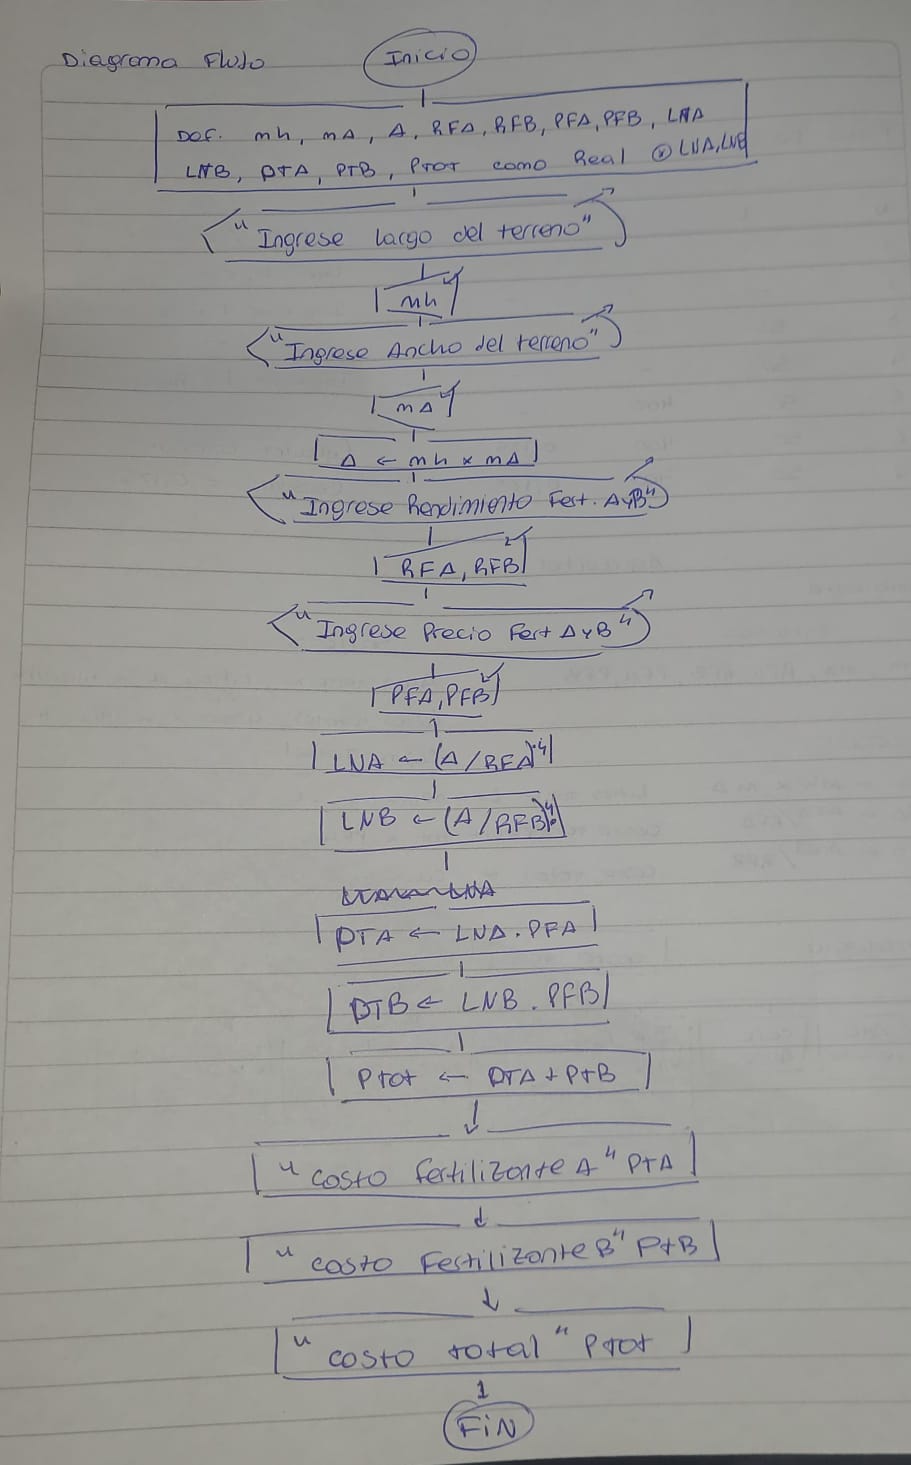 Diagrama Flujo
Inicio
Def. mh, mA, A, RFA, RFB, PFA, PFB, LNA
LNB, PTA, PTB, Ptot como Real
"Ingrese largo del terreno"
mh
"Ingrese Ancho del terreno"
mA
A ← mh x mA
"Ingrese Rendimiento Fert. AyB"
RFA, RFB
"Ingrese Precio Fert AyB"
PFA, PFB
LNA ← (A/RFA)·4
LNB ← (A/RFB)
PTA ← LNA . PFA
PTB ← LNB . PFB
Ptot ← PTA + PtB
"costo fertilizante A" PtA
"costo Fertilizante B" PtB
"costo total" Ptot
FiN